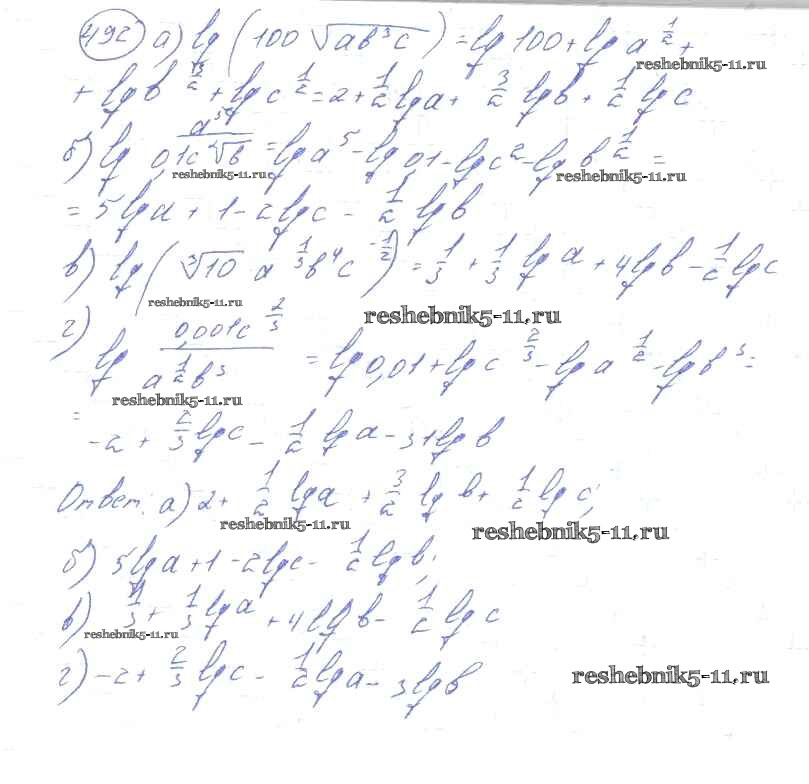 492 а) lg (100 √ab³c) = lg 100 + lg a^½ +
reshebnik5-11.ru
+ lg b^3/2 + lg c^½ = 2 + ½ lg a + 3/2 lg b + ½ lg c
б) lg a⁵/0,1c²√b = lg a⁵ - lg 0,1 - lg c² - lg b^½ =
reshebnik5-11.ru reshebnik5-11.ru
= 5 lg a + 1 - 2 lg c - ½ lg b
в) lg (³√10 a^⅓ b⁴ c^-½) = ⅓ + ⅓ lg a + 4 lg b - ½ lg c
reshebnik5-11.ru
reshebnik5-11.ru
г) lg 0,001c^⅔ / a^½ b³ = lg 0,01 + lg c^⅔ - lg a^½ - lg b³ =
reshebnik5-11.ru
= -2 + ⅔ lg c - ½ lg a - 3 lg b
Ответ: а) 2 + ½ lg a + 3/2 lg b + ½ lg c;
reshebnik5-11.ru reshebnik5-11.ru
б) 5 lg a + 1 - 2 lg c - ½ lg b;
в) ⅓ + ⅓ lg a + 4 lg b - ½ lg c
reshebnik5-11.ru
г) -2 + ⅔ lg c - ½ lg a - 3 lg b
reshebnik5-11.ru